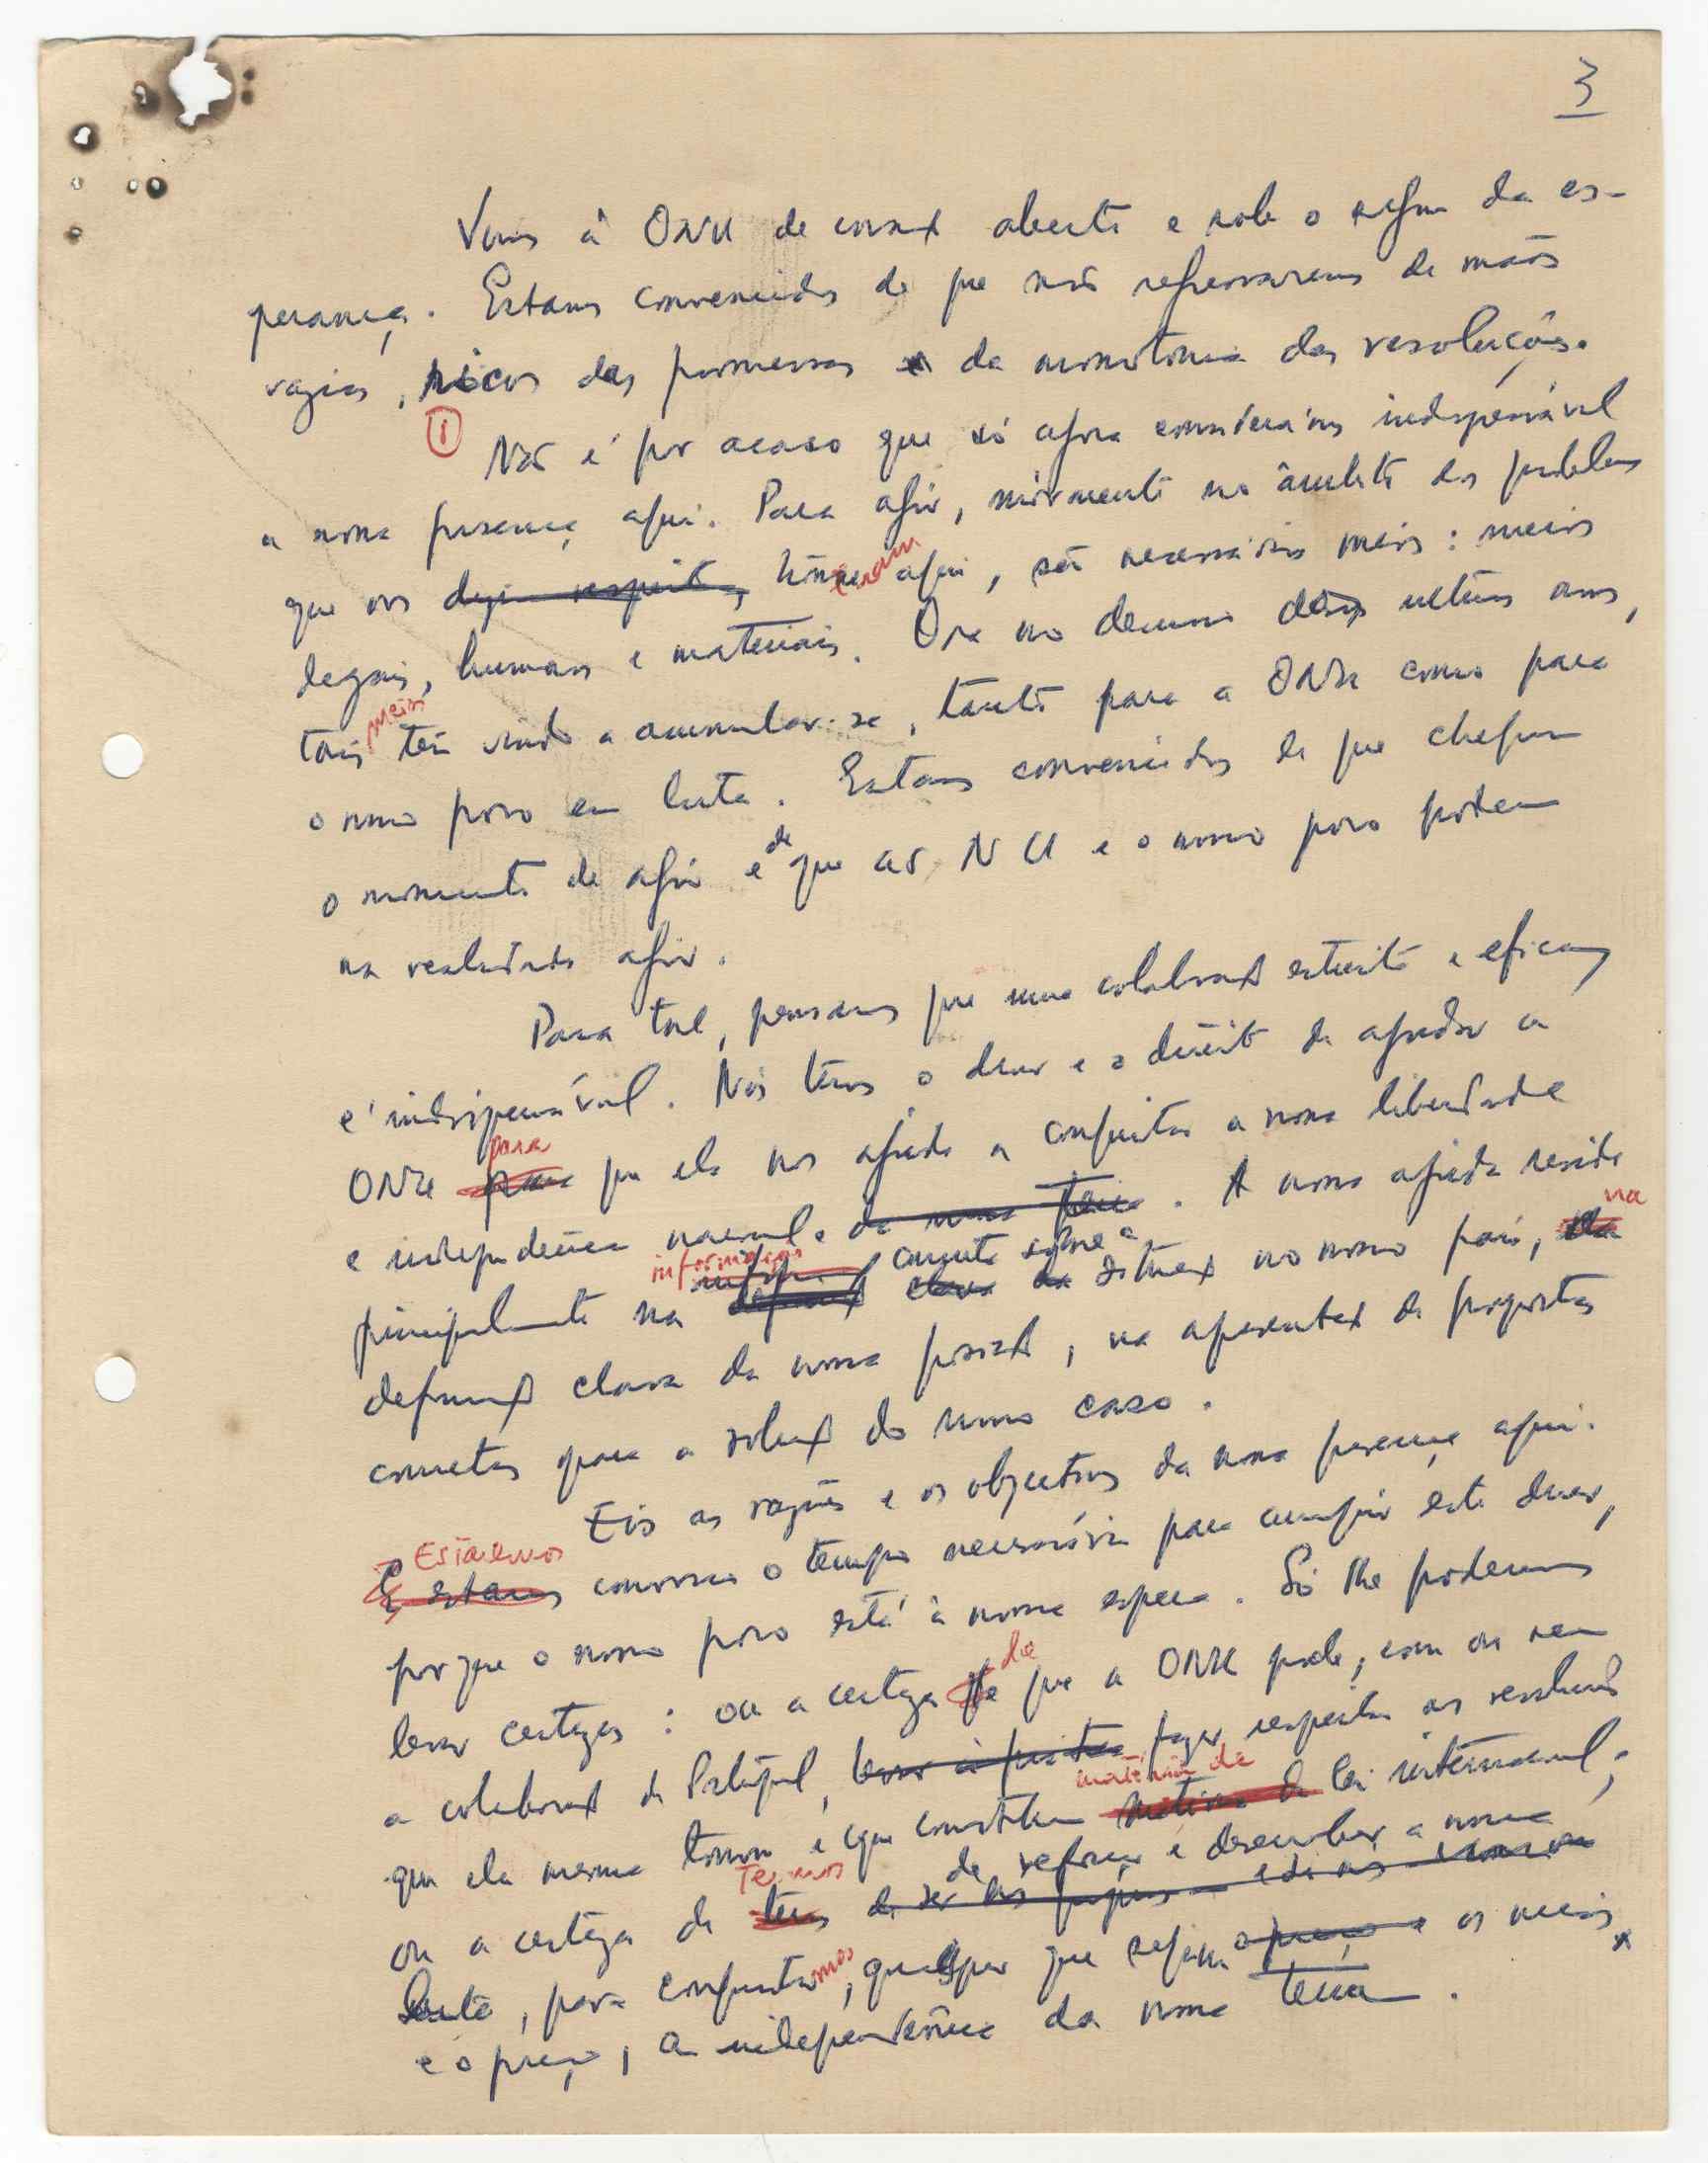 3
Vimos à ONU de coração aberto e sob o signo da es-
perança. Estamos convencidos de que não regressaremos de mãos
vazias, ricos das promessas e da monotonia das resoluções.
① Não é por acaso que só agora considerámos indispensável
a nossa presença aqui. Para agir, mormente no âmbito dos problemas
que nos dizem respeito, trouxeram aqui, são necessários meios: meios
legais, humanos e materiais. Ora no decurso destes últimos anos,
tais meios têm vindo a acumular-se, tanto para a ONU como para
o nosso povo em luta. Estamos convencidos de que chegou
o momento de agir e de que as NU e o nosso povo podem
na realidade agir.
Para tal, pensamos que uma colaboração estreita e eficaz
é indispensável. Nós temos o dever e o direito de ajudar a
ONU para para que ela nos ajude a conquistar a nossa liberdade
e independência nacional. da nossa terra. A nossa ajuda reside
principalmente na informação definição concreta clara sobre a da situação no nosso país, da na
definição clara da nossa posição, na apresentação de propostas
concretas para a solução do nosso caso.
Eis as razões e os objectivos da nossa presença aqui.
E estamos Estaremos convosco o tempo necessário para cumprir este dever,
porque o nosso povo está à nossa espera. Só lhe podemos
levar certezas: ou a certeza de que a ONU pode, com ou sem
a colaboração de Portugal, levar à prática fazer respeitar as resoluções
que ela mesma tomou e que constituem matéria de lei internacional;
ou a certeza de termos de reforçar e desenvolver a nossa
luta, para conquistarmos, quaisquer que sejam o preço e os meios
e o preço, a independência da nossa terra.